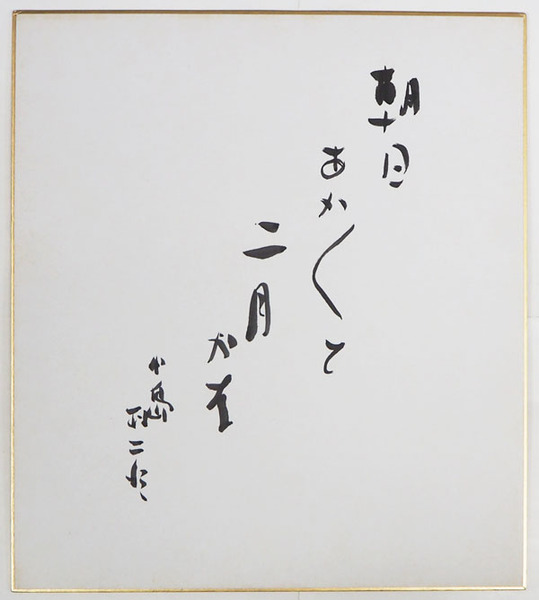 朝日
あかくて
二月
かな
小島
政二郎